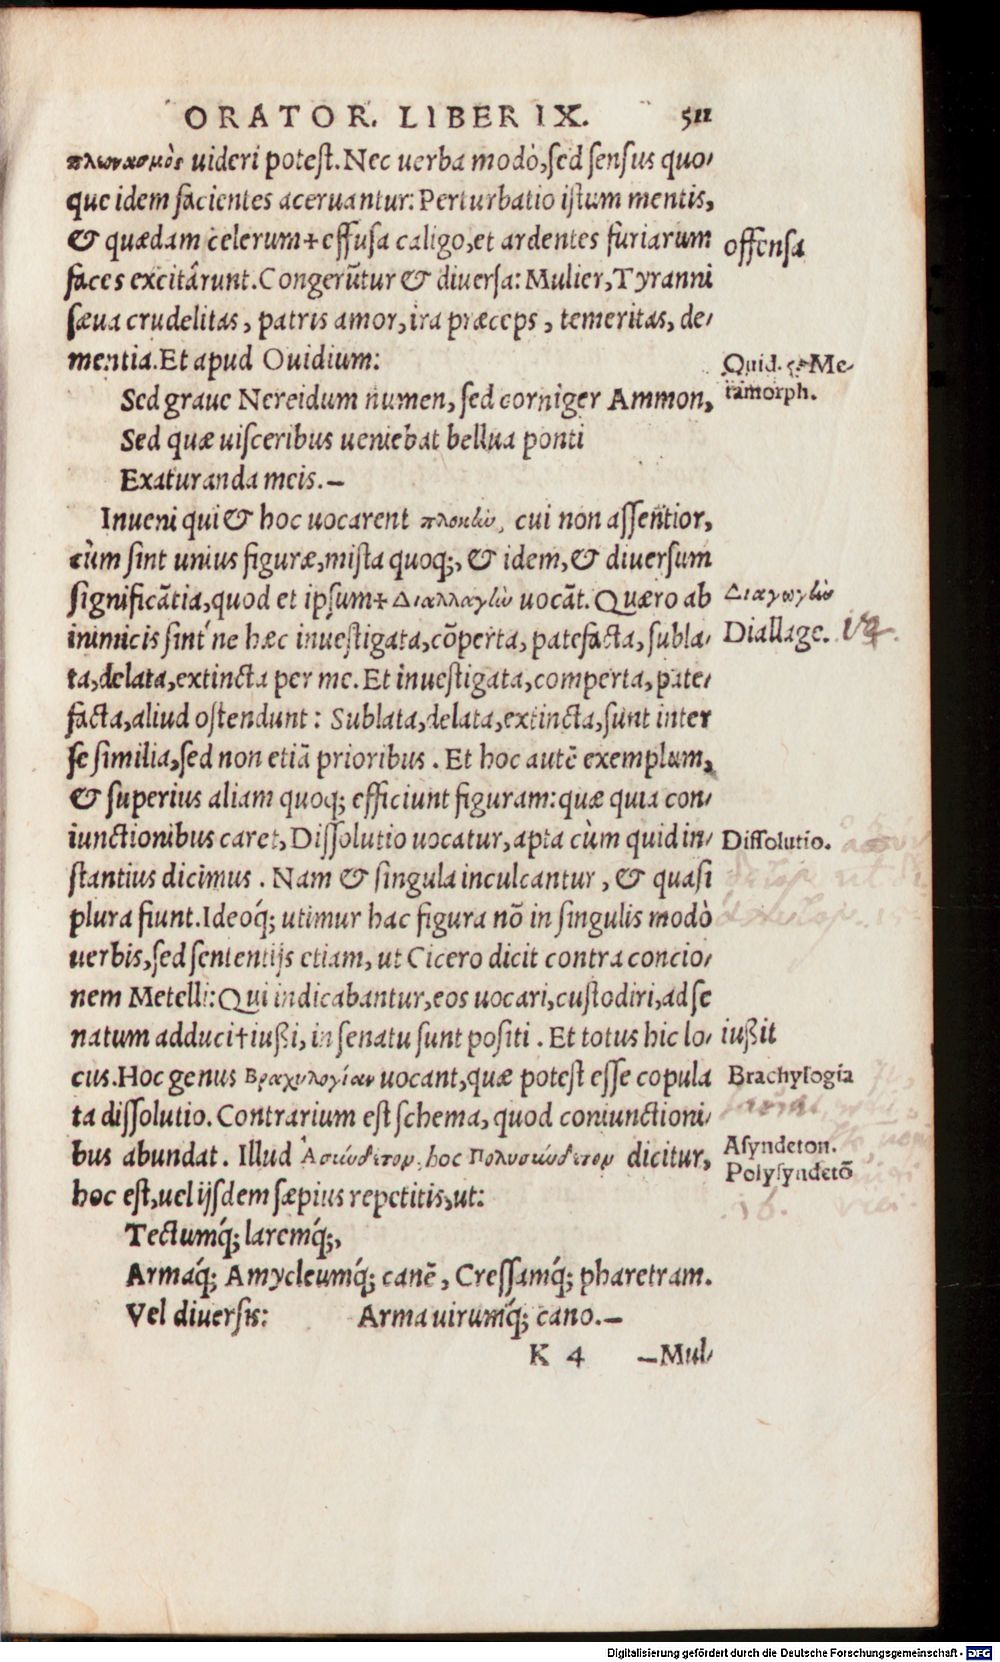 ORATOR. LIBER IX. 511
πλεονασμὸς uideri potest. Nec uerba modò, sed sensus quo-
que idem facientes aceruantur: Perturbatio istum mentis,
& quædam celerum+effusa caligo, et ardentes furiarum
offensa
faces excitârunt. Congerūtur & diuersa: Mulier, Tyranni
sæua crudelitas, patris amor, ira præceps, temeritas, de-
mentia. Et apud Ouidium:
Ouid. 5. Me-
tamorph.
Sed graue Nereidum numen, sed corniger Ammon,
Sed quæ uisceribus ueniebat bellua ponti
Exaturanda meis.—
Inueni qui & hoc uocarent πλοκὴν, cui non assentior,
cùm sint unius figuræ, mista quoq;, & idem, & diuersum
significātia, quod et ipsum+Διαλλαγὴν uocāt. Quæro ab
Διαγωγὴν
inimicis sint'ne hæc inuestigata, cōperta, patefacta, subla-
Diallage.
ta, delata, extincta per me. Et inuestigata, comperta, pate-
facta, aliud ostendunt: Sublata, delata, extincta, sunt inter
se similia, sed non etiā prioribus. Et hoc autē exemplum,
& superius aliam quoq; efficiunt figuram: quæ quia con-
iunctionibus caret, Dissolutio uocatur, apta cùm quid in-
Dissolutio.
stantius dicimus. Nam & singula inculcantur, & quasi
plura fiunt. Ideoq́; utimur hac figura nō in singulis modò
uerbis, sed sententijs etiam, ut Cicero dicit contra concio-
nem Metelli: Qui indicabantur, eos uocari, custodiri, ad se
natum adduci†iußi, in senatu sunt positi. Et totus hic lo-
iußit
cus. Hoc genus Βραχυλογίαν uocant, quæ potest esse copula
Brachylogia
ta dissolutio. Contrarium est schema, quod coniunctioni-
bus abundat. Illud Ἀσύνδετον, hoc Πολυσύνδετον dicitur,
Asyndeton.
Polysyndetō
hoc est, uel ijsdem sæpius repetitis, ut:
16.
Tectumq́; laremq́;,
Armaq́; Amycleumq́; canē, Cressamq́; pharetram.
Vel diuersis: Arma uirumq́; cano.—
K 4 —Mul-
Digitalisierung gefördert durch die Deutsche Forschungsgemeinschaft - DFG